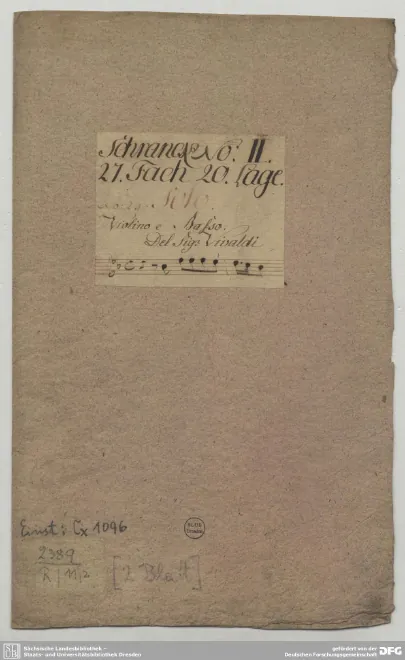 Schranck No: II.
27. Fach 20. Lage.
Solo.
Violino e Basso.
Del Sigr Vivaldi
Einst: Cx 1096
2389
[2 Blatt]
Sächsische Landesbibliothek –
Staats- und Universitätsbibliothek Dresden
gefördert von der
Deutschen Forschungsgemeinschaft DFG